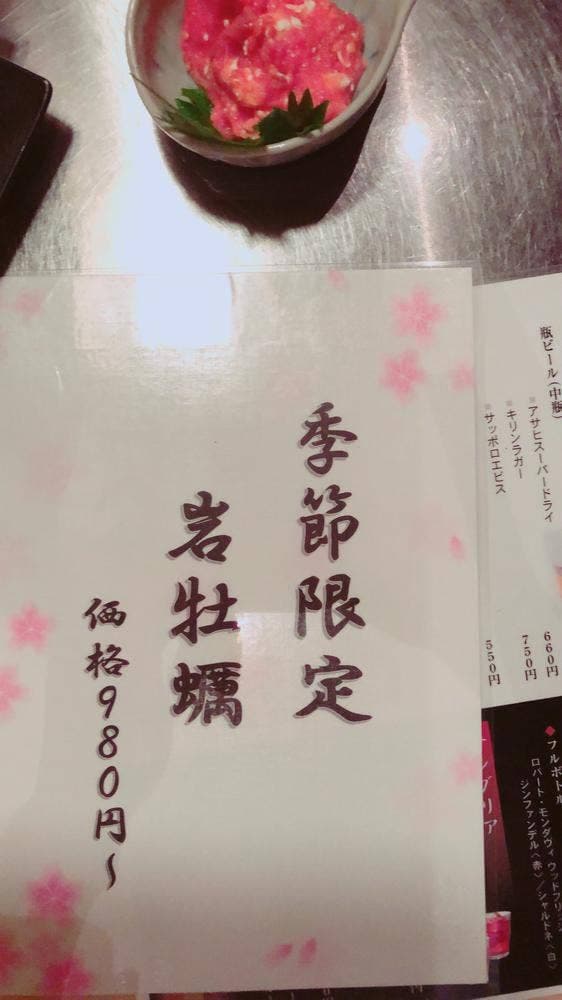 季節限定
岩牡蠣
価格980円~
瓶ビール(中瓶)
アサヒスーパードライ
キリンラガー
サッポロエビス
660円
750円
550円
フルボトル
ロバート・モンダヴィ ウッドブリッジ
ジンファンデル〈赤〉/シャルドネ〈白〉
ングリア